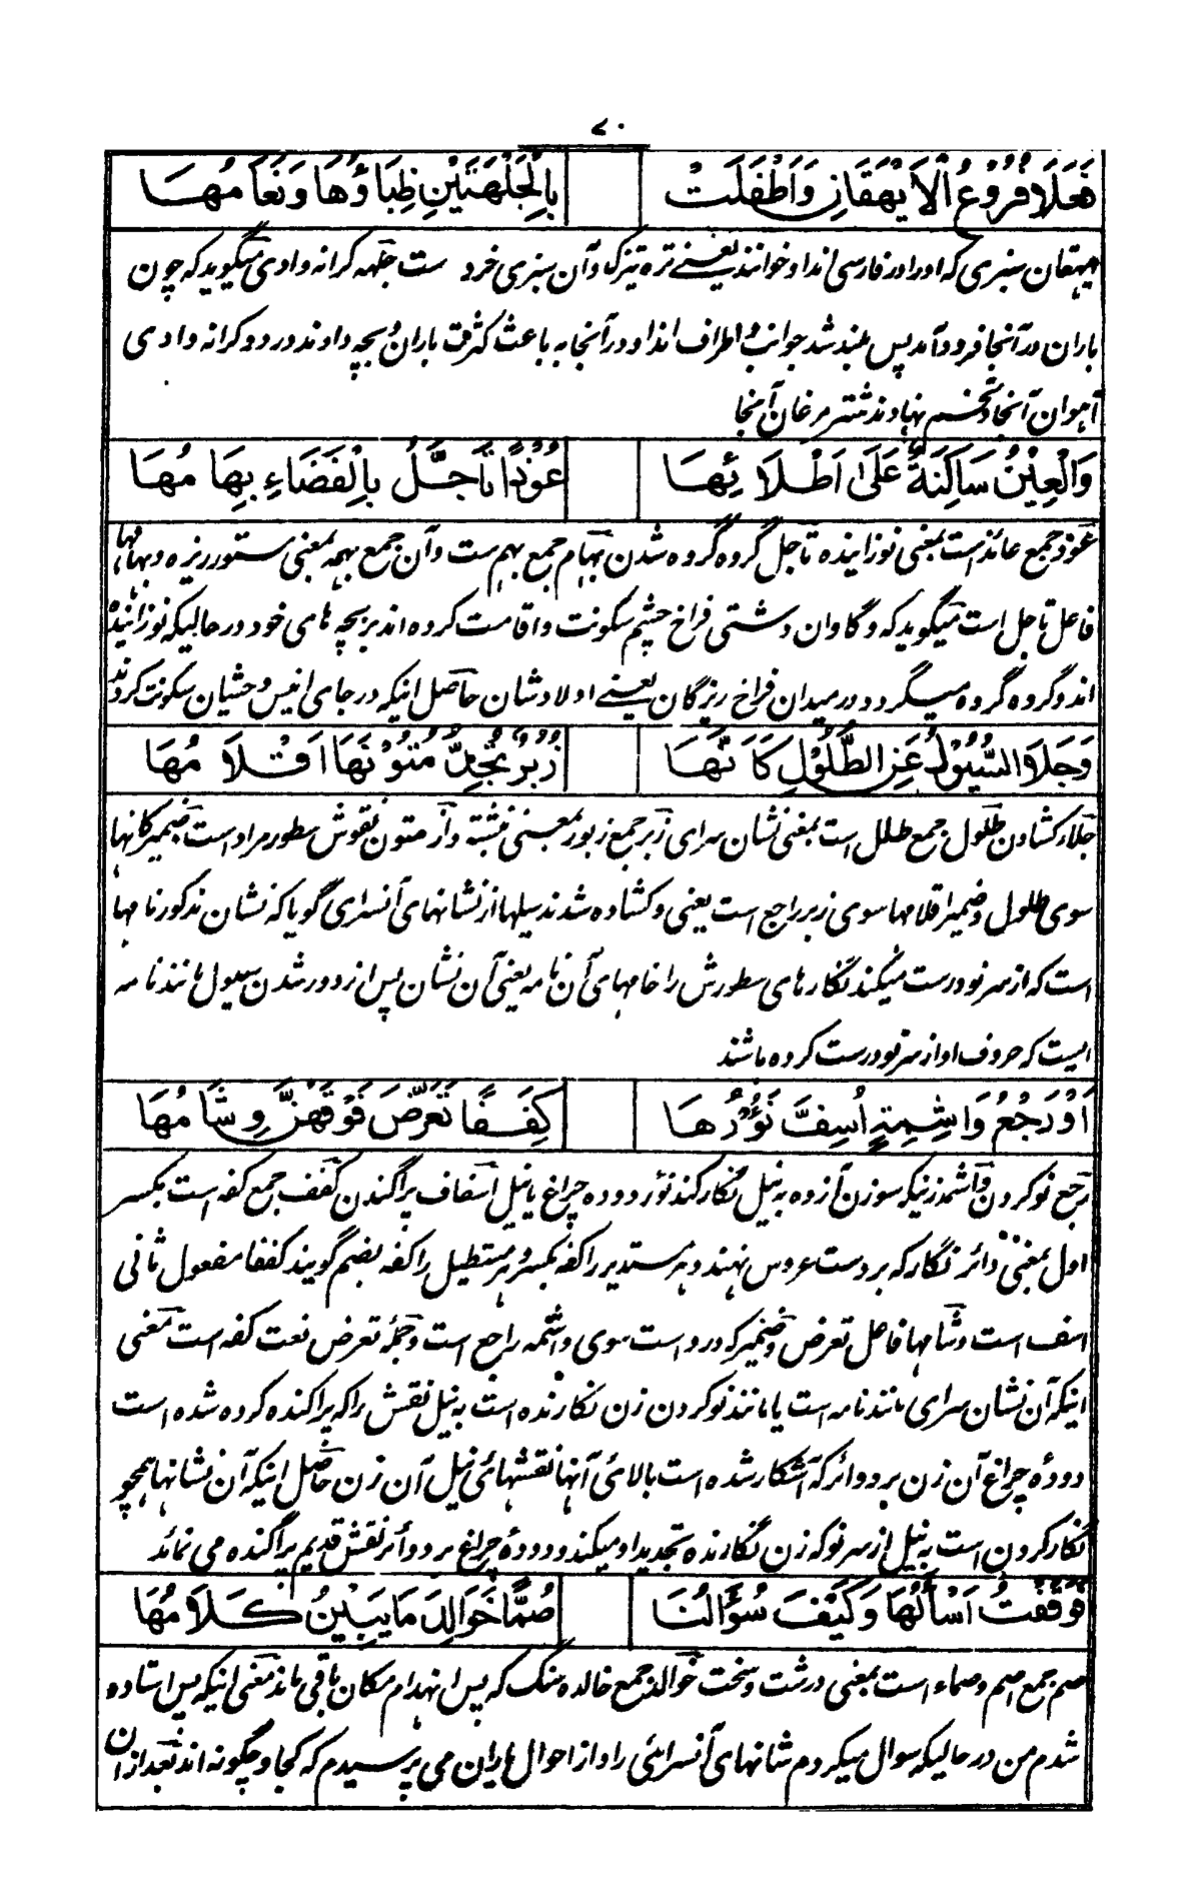 ۷۰
فَعَلَا فُرُوْعُ الْاَیْهَقَانِ وَاَطْفَلَتْ بِالْجَلْهَتَیْنِ ظِبَاؤُهَا وَنَعَامُهَا
ایہقان سبزی کہ اورا در فارسی انداو خوانند یعنے ترہ تیزک و آن سبزی خرد ست جلہہ کرانہ وادی میگوید کہ چون
باران در آنجا فرود آمد پس بلند شد جوانب و اطراف انداو در آنجا بہ باعث کثرت باران و بچہ دادند در دو کرانہ وادی
آہوان آنجا و تخم نہادند شتر مرغان آنجا
وَالْعِیْنُ سَاکِنَةٌ عَلَی اَطْلَائِهَا عُوْذًا تَاَجَّلُ بِالْفَضَاءِ بِهَامُهَا
عوذ جمع عائذ است بمعنی نوزایندہ تاجل گروہ گروہ شدن بہام جمع بہم ست و آن جمع بہمہ بمعنی ستور ریزہ و بہامہا
فاعل تاجل است میگوید کہ و گاوان دشتی فراخ چشم سکونت و اقامت کردہ اند بر بچہ ہای خود در حالیکہ نوزائندہ
اند و گروہ گروہ میگردد در میدان فراخ ریزگان یعنے اولاد شان حاصل اینکہ در جای انیس وحشیان سکونت کردند
وَجَلَا السُّیُوْلُ عَنِ الطُّلُوْلِ کَاَنَّهَا زُبُرٌ تُجِدُّ مُتُوْنَهَا اَقْلَامُهَا
جلاء کشادن طلول جمع طلل است بمعنی نشان سرای زبر جمع زبور بمعنی نبشتہ و از متون نقوش سطور مراد است ضمیر کانہا
سوی طلول و ضمیر اقلامہا سوی زبر راجع است یعنی و کشادہ شدند سیلہا از نشانہای آنسرای گویا کہ نشان مذکور نامہا
است کہ از سر نو درست میکند نگارہای سطورش را خامہای آن نامہ یعنی آن نشان پس از دور شدن سیول مانند نامہ
ایست کہ حروف او از سر نو درست کردہ باشند
اَوْ رَجْعُ وَاشِمَةٍ اُسِفَّ نَؤُوْرُهَا کِفَفًا تَعَرَّضَ فَوْقَهُنَّ وِشَامُهَا
رجع نو کردن واشمہ زنیکہ سوزن آزدہ بہ نیل نگار کند نؤر دودہ چراغ یا نیل اسفاف پراگندن کفف جمع کفہ است بکسر
اول بمعنی دائر نگار کہ بر دست عروس نہند و ہر مستدیر را کفہ بکسر و ہر مستطیل را کفہ بضم گویند کففا مفعول ثانی
اسف است وشامہا فاعل تعرض و ضمیر کہ درو است سوی واشمہ راجع است و جملۂ تعرض نعت کفہ است معنی
اینکہ آن نشان سرای مانند نامہ است یا مانند نو کردن زن نگارندہ است بہ نیل نقش را کہ پراکندہ کردہ شدہ است
دودۂ چراغ آن زن بر دوائر کہ آشکار شدہ است بالائی آنہا نقشہائی نیل آن زن حاصل اینکہ آن نشانہا ہمچو
نگار کردن است بہ نیل از سر نو کہ زن نگارندہ تجدید او میکند و دودۂ چراغ بر دوائر نقش قدیم پراگندہ می نماید
فَوَقَفْتُ اَسْاَلُهَا وَکَیْفَ سُؤَالُنَا صُمًّا خَوَالِدَ مَا یَبِیْنُ کَلَامُهَا
صم جمع اصم و صماء است بمعنی درشت و سخت خوالد جمع خالدہ سنگ کہ پس انہدام مکان باقی ماند معنی اینکہ پس استادہ
شدم من در حالیکہ سوال میکردم نشانہای آنسرائی را و از احوال یاران می پرسیدم کہ کجا و چگونہ اند بعد ازان